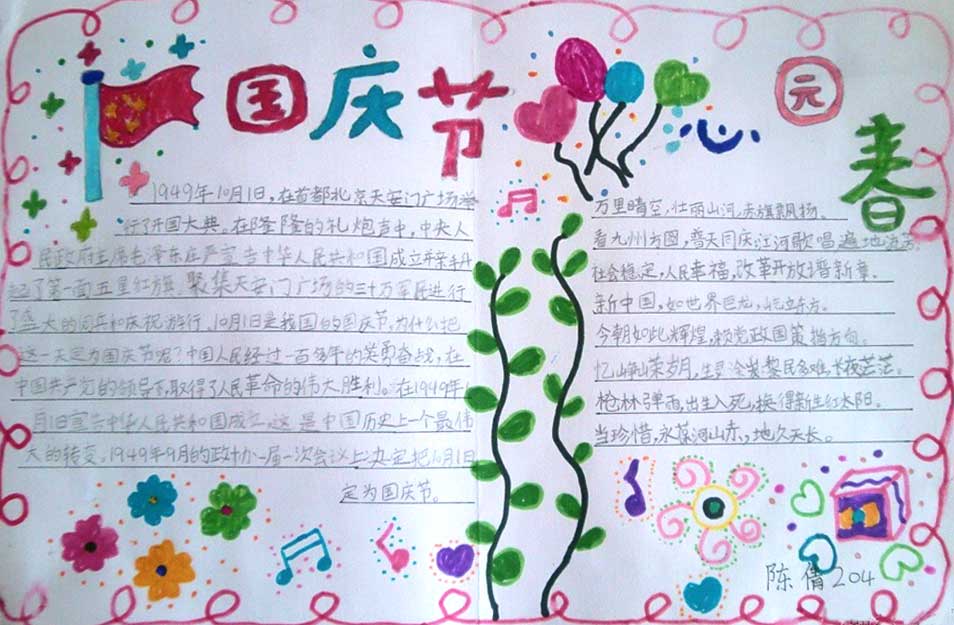 国庆节
1949年10月1日,在首都北京天安门广场举
行了开国大典,在隆隆的礼炮声中,中央人
民政府主席毛泽东庄严宣告中华人民共和国成立并亲手升
起了第一面五星红旗。聚集天安门广场的三十万军民进行
了盛大的阅兵和庆祝游行。10月1日是我国的国庆节,为什么把
这一天定为国庆节呢?中国人民经过一百多年的英勇奋战,在
中国共产党的领导下,取得了人民革命的伟大胜利。在1949年1
月1日宣告中华人民共和国成立,这是中国历史上一个最伟
大的转变。1949年9月的政协一届一次会议上决定把10月1日
定为国庆节。
心园春
万里晴空,壮丽山河,赤旗飘扬。
看九州方圆,普天同庆,江河歌唱遍地流芳。
社会稳定,人民幸福,改革开放谱新章。
新中国,如世界巨龙,屹立东方。
今朝如此辉煌,赖党政国策指方向。
忆峥嵘岁月,黎民多难,长夜茫茫。
枪林弹雨,出生入死,换得新生红太阳。
当珍惜,永葆河山赤,地久天长。
陈倩204